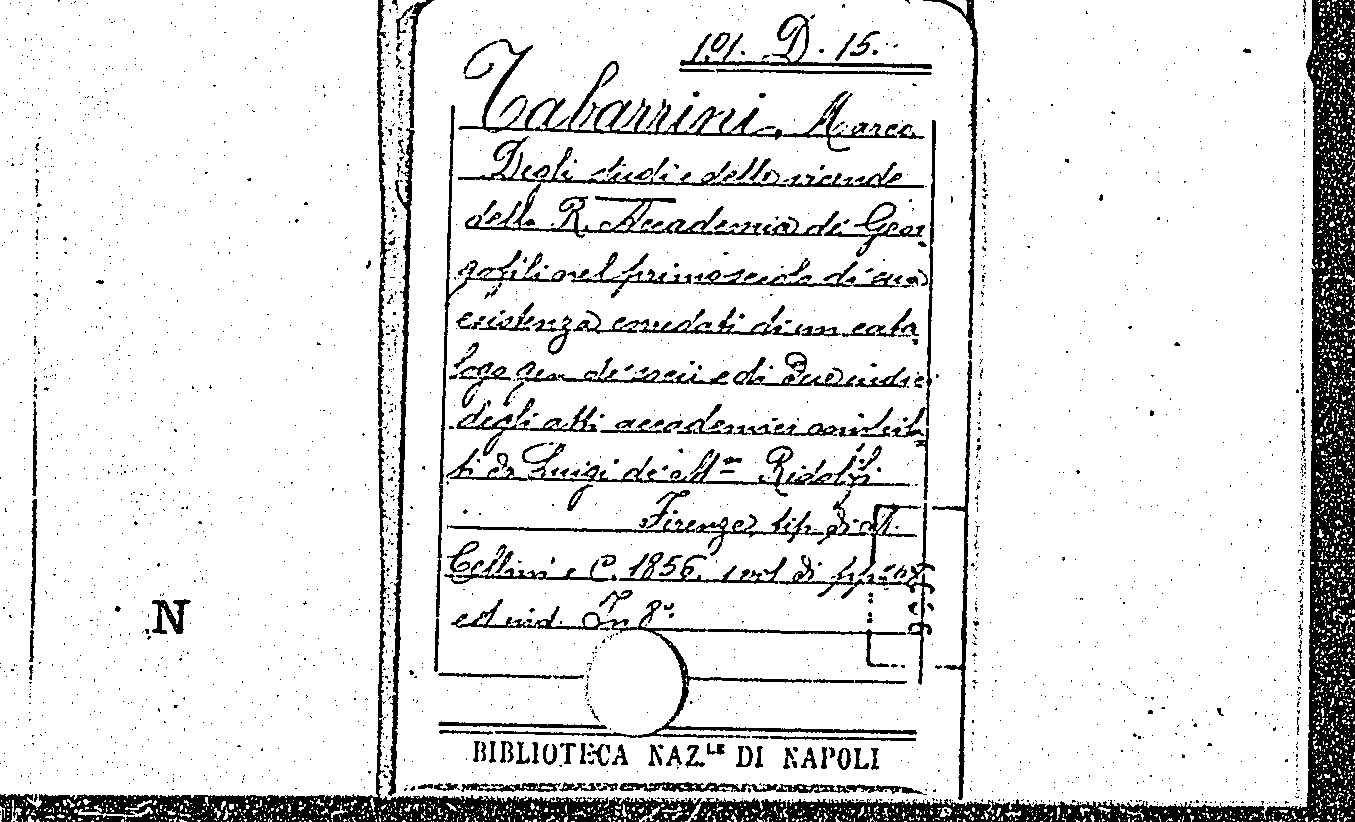 191. D. 15.
Tabarrini, Marco
Degli studi e delle vicende
della R. Accademia dei Geor
gofili nel primo secolo di sua
esistenza corredati di un cata
logo gen. de' socii e di due indici
degli atti accademici compila
ti da Luigi de' M.si Ridolfi
Firenze, tip. di M.
Cellini e C. 1856. 1 vol di pp.
ed ind. In 8º
N
BIBLIOTECA NAZ.LE DI NAPOLI